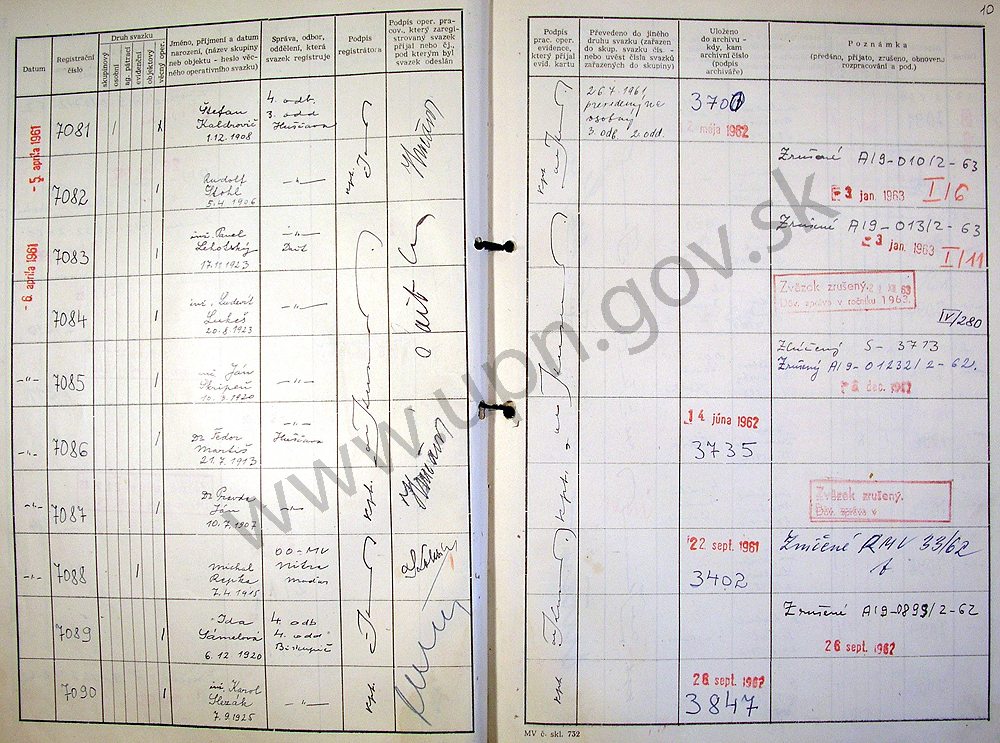 10
Datum
Registrační číslo
Druh svazku
skupinový
osobní
sp. pátrací
evidenční
objektový
věcný oper.
Jméno, příjmení a datum
narození, (název skupiny
neb objektu - heslo věc-
ného operativního svazku)
Správa, odbor,
oddělení, která
svazek registruje
Podpis
registrátora
Podpis oper. pra-
cov., který zaregi-
strovaný svazek
přijal nebo čj.,
pod kterým byl
svazek odeslán
Podpis
prac. oper.
evidence,
který přijal
evid. kartu
Převedeno do jiného
druhu svazku (zařazen
do skup. svazku čís. -
nebo uvést čísla svazků
zařazených do skupiny)
Uloženo
do archivu -
kdy, kam
archivní číslo
(podpis
archiváře)
Poznámka
(předáno, přijato, zrušeno, obnoveno
rozpracování a pod.)
- 5. apríla 1961
7081
Štefan
Kaldrovič
1.12.1908
4. odb.
3. odd
Huščava
26.7.1961
prevedený na
osobný
3. odb. 2. odd.
3707
2. mája 1962
7082
Rudolf
Stohl
5.4.1906
-"-
Zrušené A/9-010/2-63
- 3 jan. 1963 I/6
- 6. apríla 1961
7083
ini. Pavel
Lehotský
17.11.1923
-"-
Zrušené A/9-013/2-63
- 3 jan. 1963
I/11
7084
ini. Ľudevít
Lukeš
20.8.1923
-"-
Zväzok zrušený.
Dôv. správa v ročníku 1963.
IV/280
-"-
7085
ini. Ján
-"-
Zlúčený S-3713
Zrušený A/9-01232/2-62.
dec. 1962
-"-
7086
Dr. Fedor
Martiš
21.7.1913
-"-
Huščava
14 júna 1962
3735
-"-
7087
Dr. Pravda
Ján
10.7.1907
-"-
Zväzok zrušený.
Dôv. správa v
-"-
7088
Michal
Repka
7.4.1915
OO-MV
Nitra
22. sept. 1961
3402
Zničené RMV 33/62
7089
Ida
Sámelová
6.12.1920
4. odb
4. odd
Biskupič
Zrušené A/9-0893/2-62
26 sept. 1962
7090
ini. Karol
Slezák
7.9.1925
-"-
Kpt.
26 sept. 1962
3847
MV č. skl. 732
www.upn.gov.sk